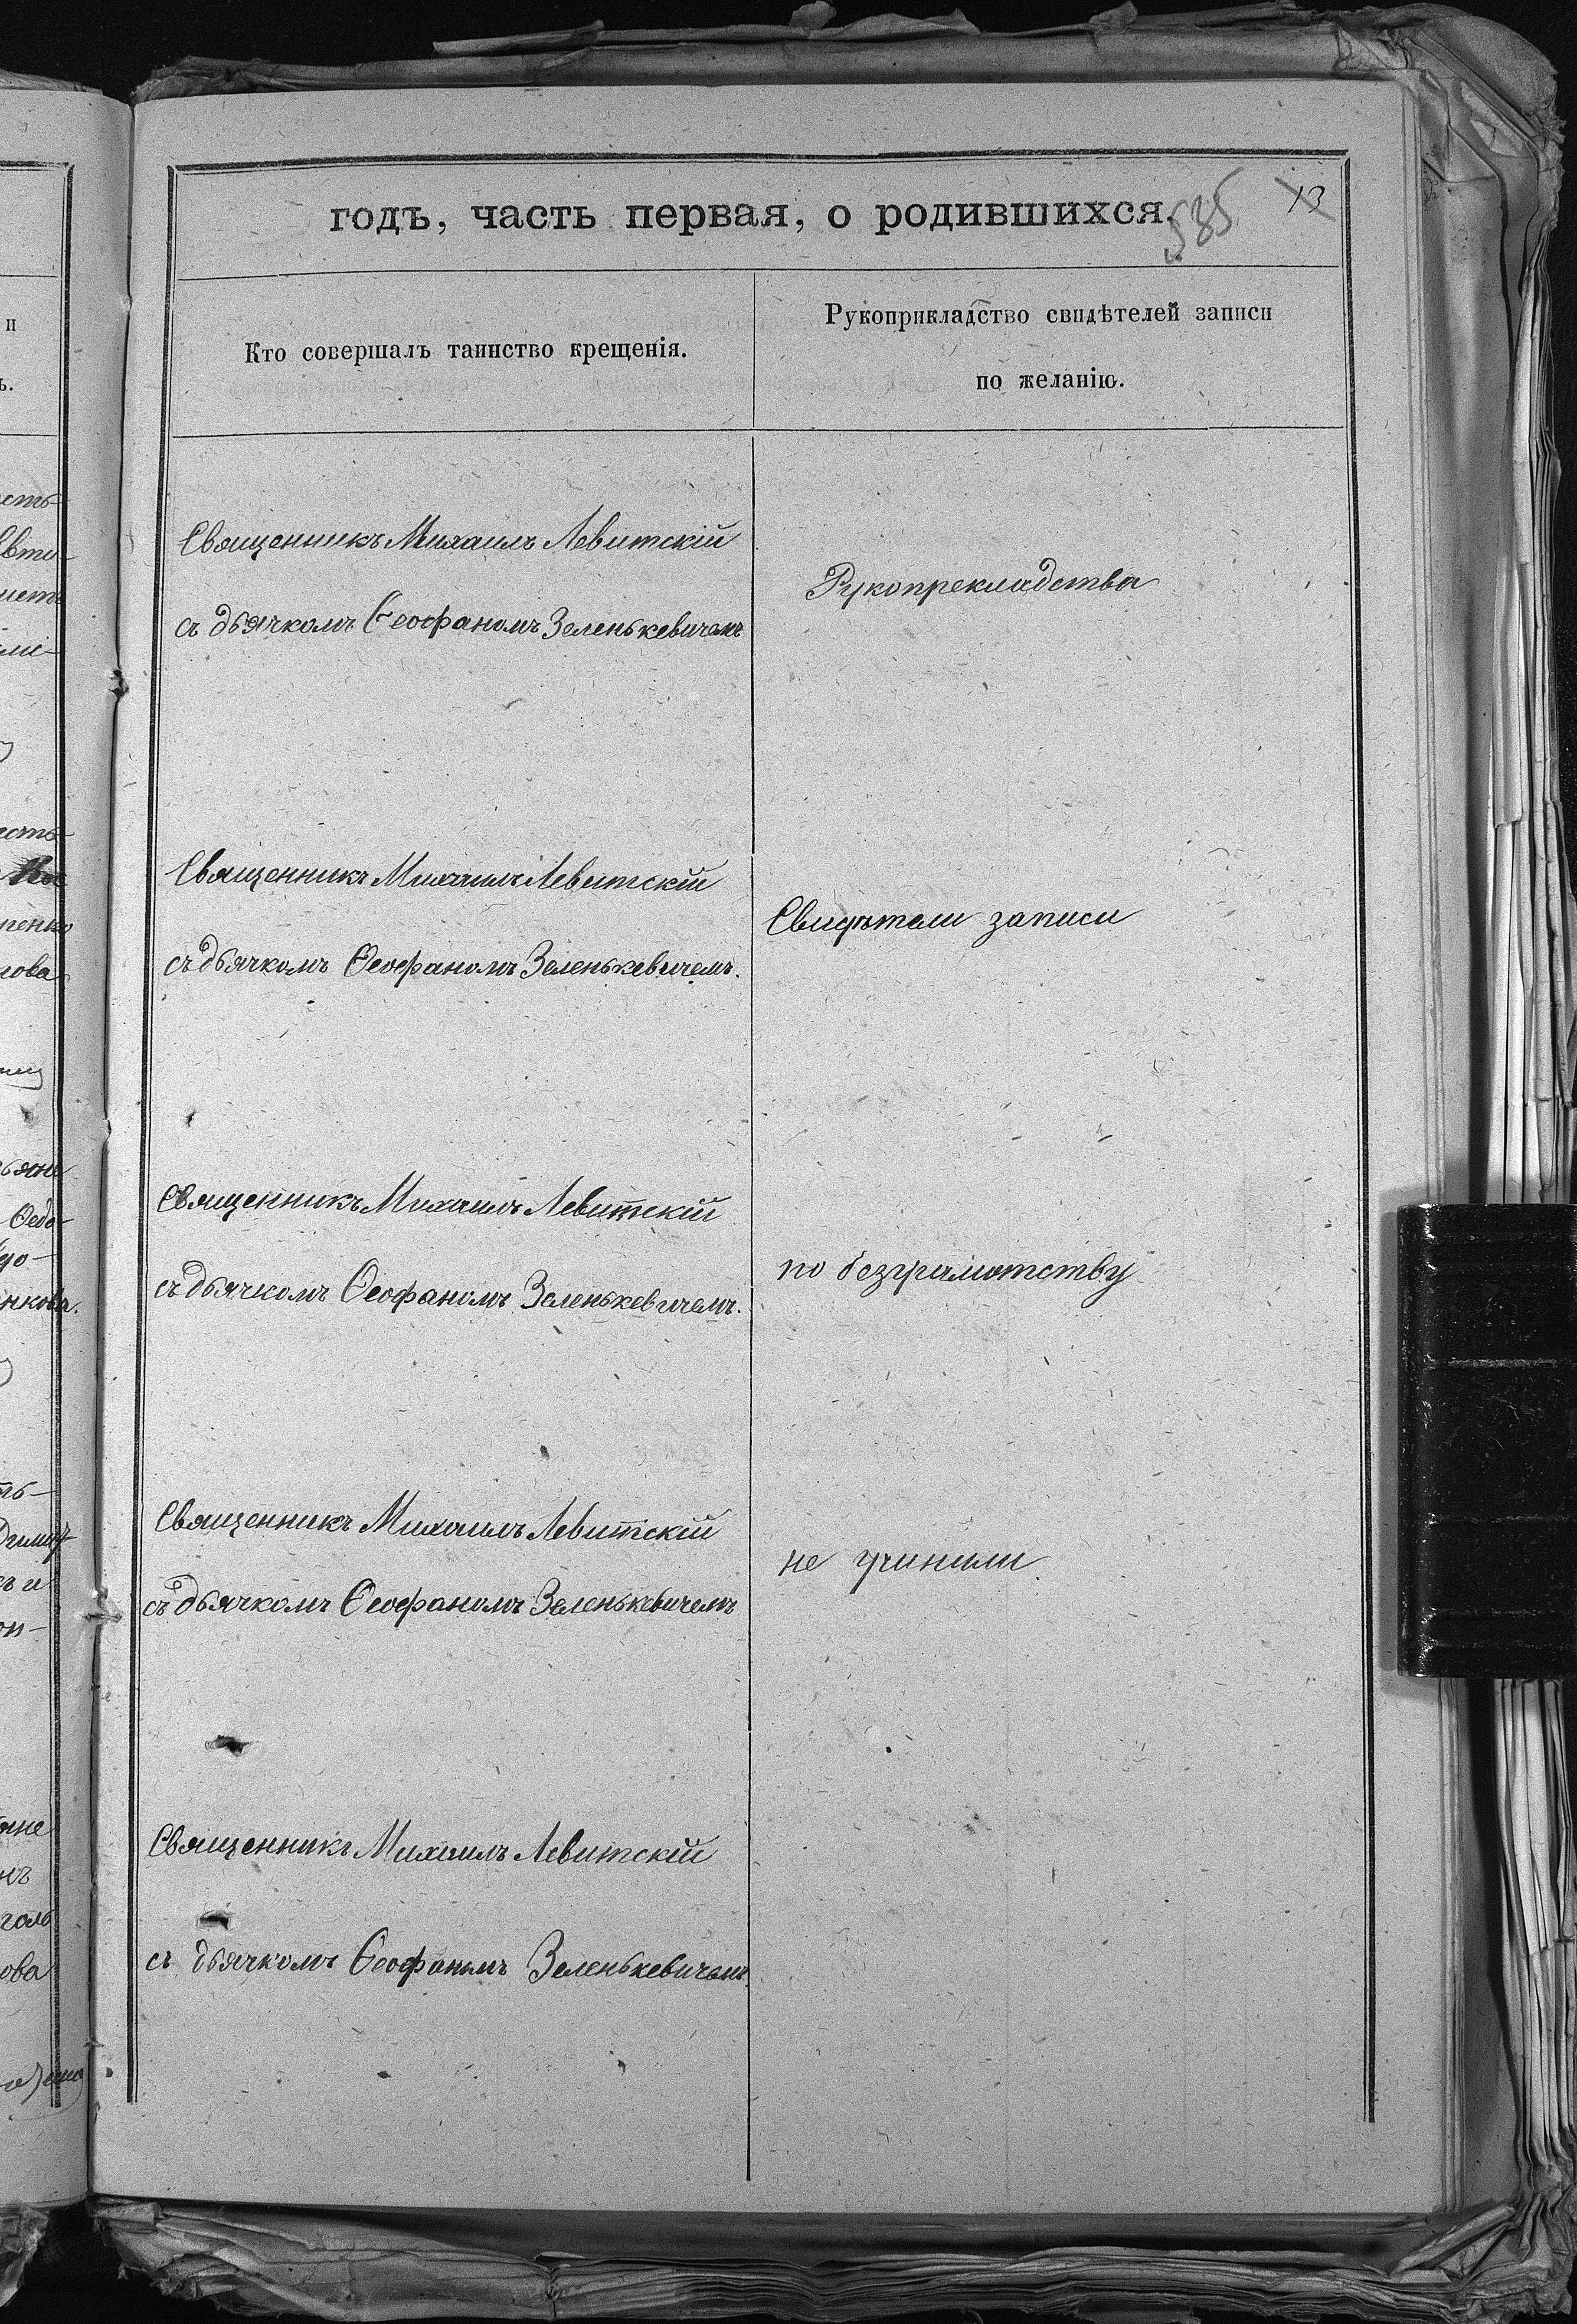 годъ, часть первая, о родившихся.
535
13
Кто совершалъ таинство крещенія.
Рукоприкладство свидѣтелей записи
по желанію.
Священникъ Михаилъ Левитскій
съ дьячкомъ Ѳеофаномъ Зеленькевичемъ
Рукопрекладства
Священникъ Михаилъ Левитскій
съ дьячкомъ Ѳеофаномъ Зеленькевичемъ.
Свидѣтели записи
Священникъ Михаилъ Левитскій
съ дьячкомъ Ѳеофаномъ Зеленькевичемъ.
по безграмотству
Священникъ Михаилъ Левитскій
съ дьячкомъ Ѳеофаномъ Зеленькевичемъ
не учинили.
Священникъ Михаилъ Левитскій
съ дьячкомъ Ѳеофаномъ Зеленькевичемъ